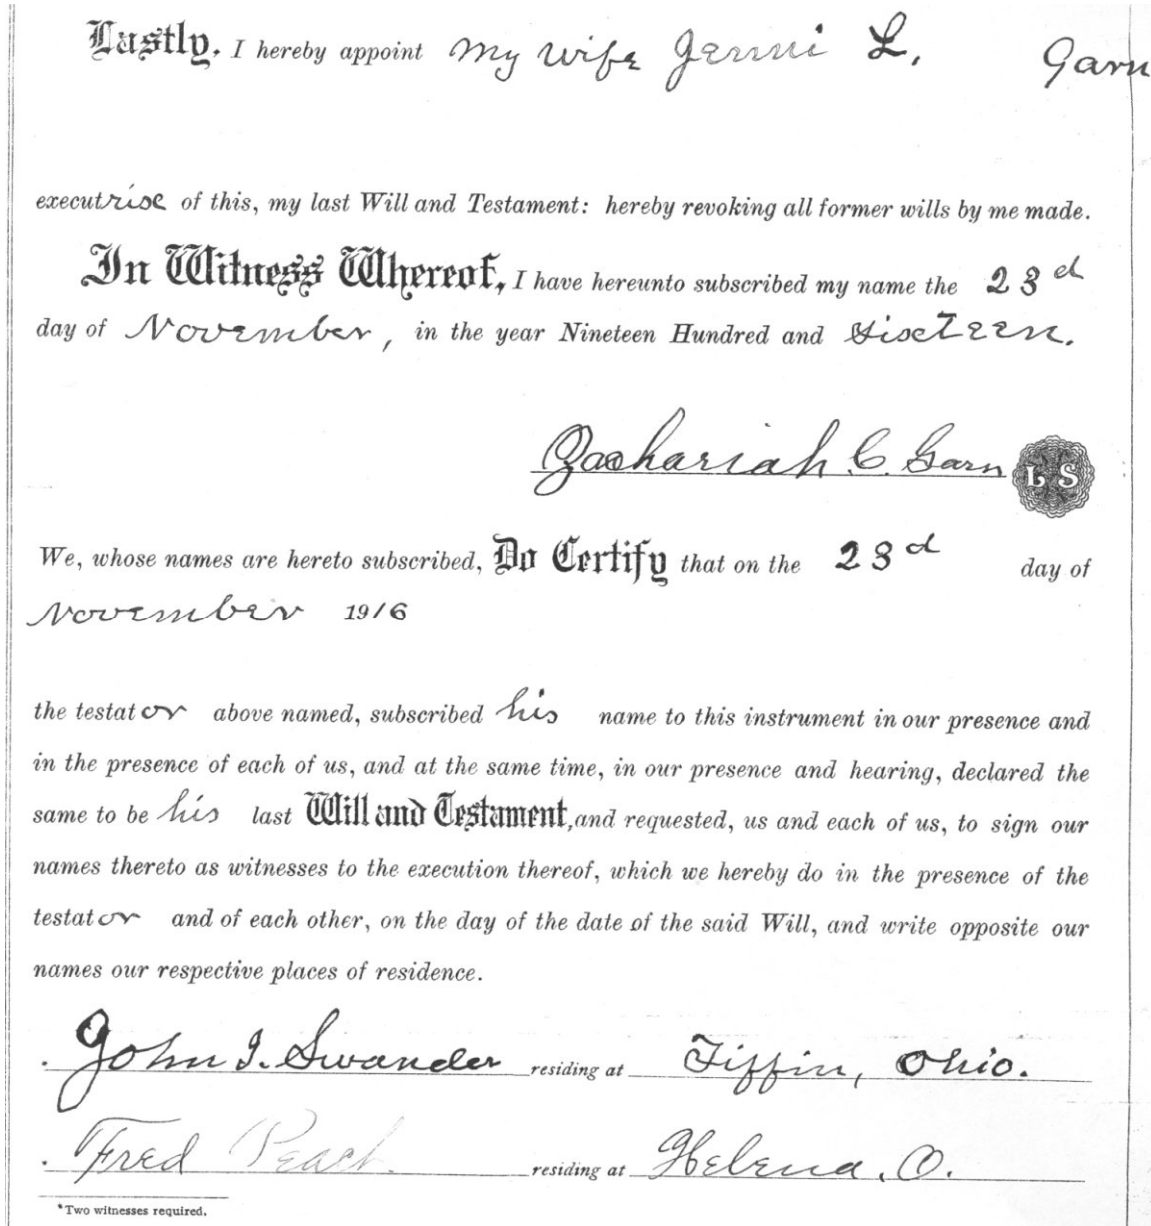 Lastly, I hereby appoint My wife Jenni L. Garn
executrixe of this, my last Will and Testament: hereby revoking all former wills by me made.
In Witness Whereof, I have hereunto subscribed my name the 23rd
day of November, in the year Nineteen Hundred and Sixteen.
Zachariah C. Garn L S
We, whose names are hereto subscribed, Do Certify that on the 23d day of
November 1916
the testator above named, subscribed his name to this instrument in our presence and
in the presence of each of us, and at the same time, in our presence and hearing, declared the
same to be his last Will and Testament, and requested, us and each of us, to sign our
names thereto as witnesses to the execution thereof, which we hereby do in the presence of the
testator and of each other, on the day of the date of the said Will, and write opposite our
names our respective places of residence.
John I. Swander residing at Tiffin, Ohio.
Fred Peach. residing at Helena, O.
*Two witnesses required.